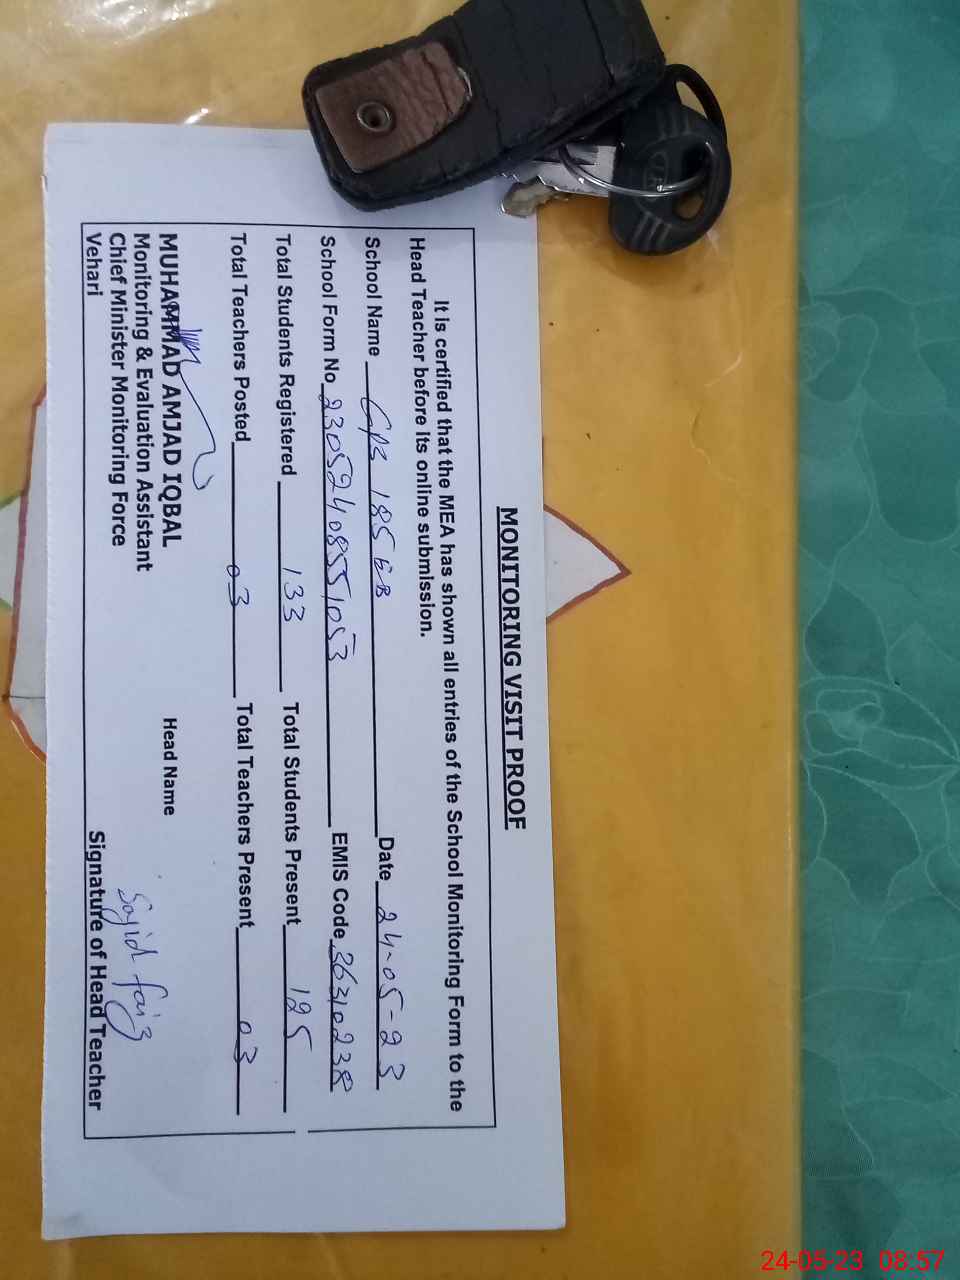 MONITORING VISIT PROOF
It is certified that the MEA has shown all entries of the School Monitoring Form to the
Head Teacher before its online submission.
School Name GPS 185 EB Date 24-05-23
School Form No 23052408551053 EMIS Code 36310238
Total Students Registered 133 Total Students Present 125
Total Teachers Posted 03 Total Teachers Present 03
MUHAMMAD AMJAD IQBAL Head Name
Monitoring & Evaluation Assistant
Chief Minister Monitoring Force Sajid faiz
Vehari Signature of Head Teacher
24-05-23 08:57